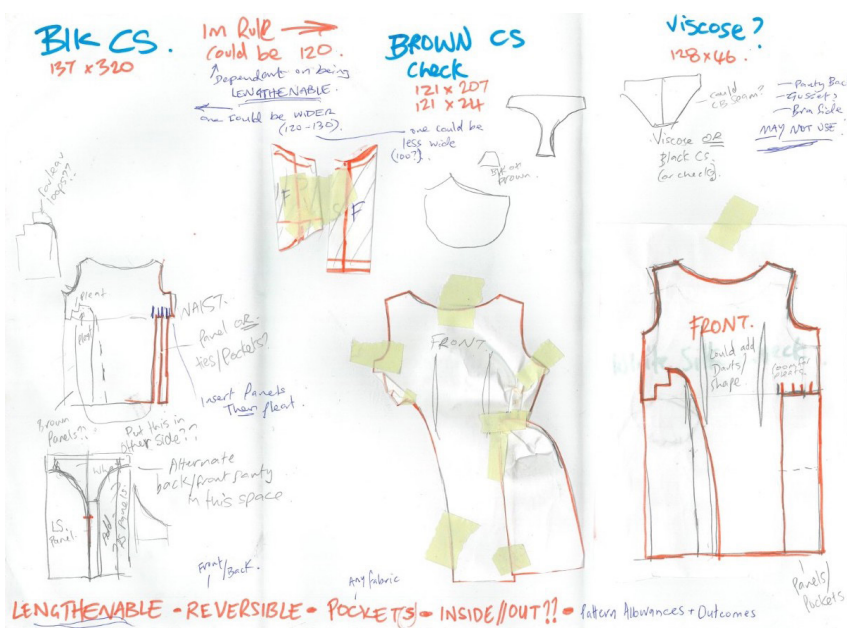 Blk CS.
137 x 320
1m Rule
could be 120.
Dependant on being
LENGTHENABLE.
one could be WIDER
(120-130).
BROWN CS
Check
121 x 207
121 x 24
one could be
less wide
(100?).
Blk or
Brown.
Viscose?
128 x 46.
could
CB Seam?
Panty Back
Gussets
Bra Side
MAY NOT USE.
Viscose OR
Black CS.
(or check).
rouleau
loops??
F
F
Pleat
WAIST.
Panel OR
ties/Pockets?
Insert Panels
Then pleat.
Brown
Panels??
Put this in
other side??
Alternate
back/front panty
in this space.
LS.
Panel.
Front/Back.
FRONT.
FRONT.
Could add
Darts/
Shape.
Room for
Pleats.
Panels/
Pockets
Any fabric
LENGTHENABLE - REVERSIBLE - POCKET(S) - INSIDE//OUT!! - Pattern Allowances + Outcomes